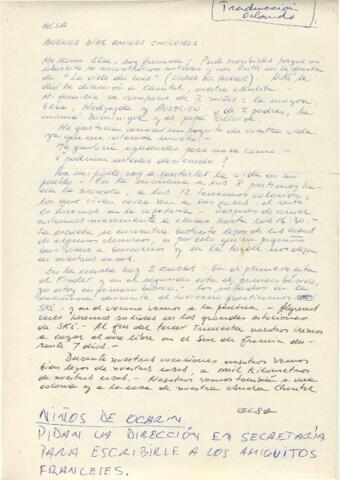 Traducción
Orlando
ELSA
BUENOS DÍAS AMIGOS CHILENOS:
Me llamo Elsa, soy francesa. Pude escribirles porque mi
abuelita se encontró con ustedes y con Ruth en la fiesta
de "La ville du bois" (CIUDAD DE MADERA). Ruth le
dió la dirección a Chantal, nuestra abuelita.
Mi familia se compone de 3 niñas: la mayor,
Elsa, y de 2 padres, la
mamá Dominique y el papá
Me gustaría conocer un poquito de vuestra vida
ya que me interesa mucho
Me gustaría ayudarles pero no sé como.
¿Podrían ustedes decírmelo?
Por mi parte voy a contarles la vida en mi
pueblo. En la mañana a las 8 partimos ha-
cia la Escuela, a las 12 tenemos colación,
los que viven cerca van a sus casas, el resto
lo hacemos en la cafetería. Después de comer
entramos nuevamente a clases hasta las 16:30.
La escuela se encuentra bastante lejos de las casas
de algunos alumnos, es por ello que un pequeño
bus viene a buscarnos y en la tarde nos deja
en nuestras casas.
En la escuela hay 2 cursos. En el primero está
el Kinder y en el segundo está el primero básico,
yo estoy en primero básico. Los sábados en la
montaña durante el invierno practicamos
SKI y en el verano vamos a la piscina. Algunas
veces hacemos salidas en las grandes estaciones
de SKI. Al fin del tercer Trimestre nosotros iremos
a al aire libre en el Sur de Francia du-
rante 7 días.
Durante nuestras vacaciones nosotros vamos
bien lejos de nuestras casas, a mil kilómetros
de nuestras casas. Nosotros vamos también a una
colonia y a la casa de nuestra abuela Chantal
ELSA
NIÑOS DE OCARIN
PIDAN LA DIRECCIÓN EN SECRETARÍA
PARA ESCRIBIRLE A LOS AMIGUITOS
FRANCESES.